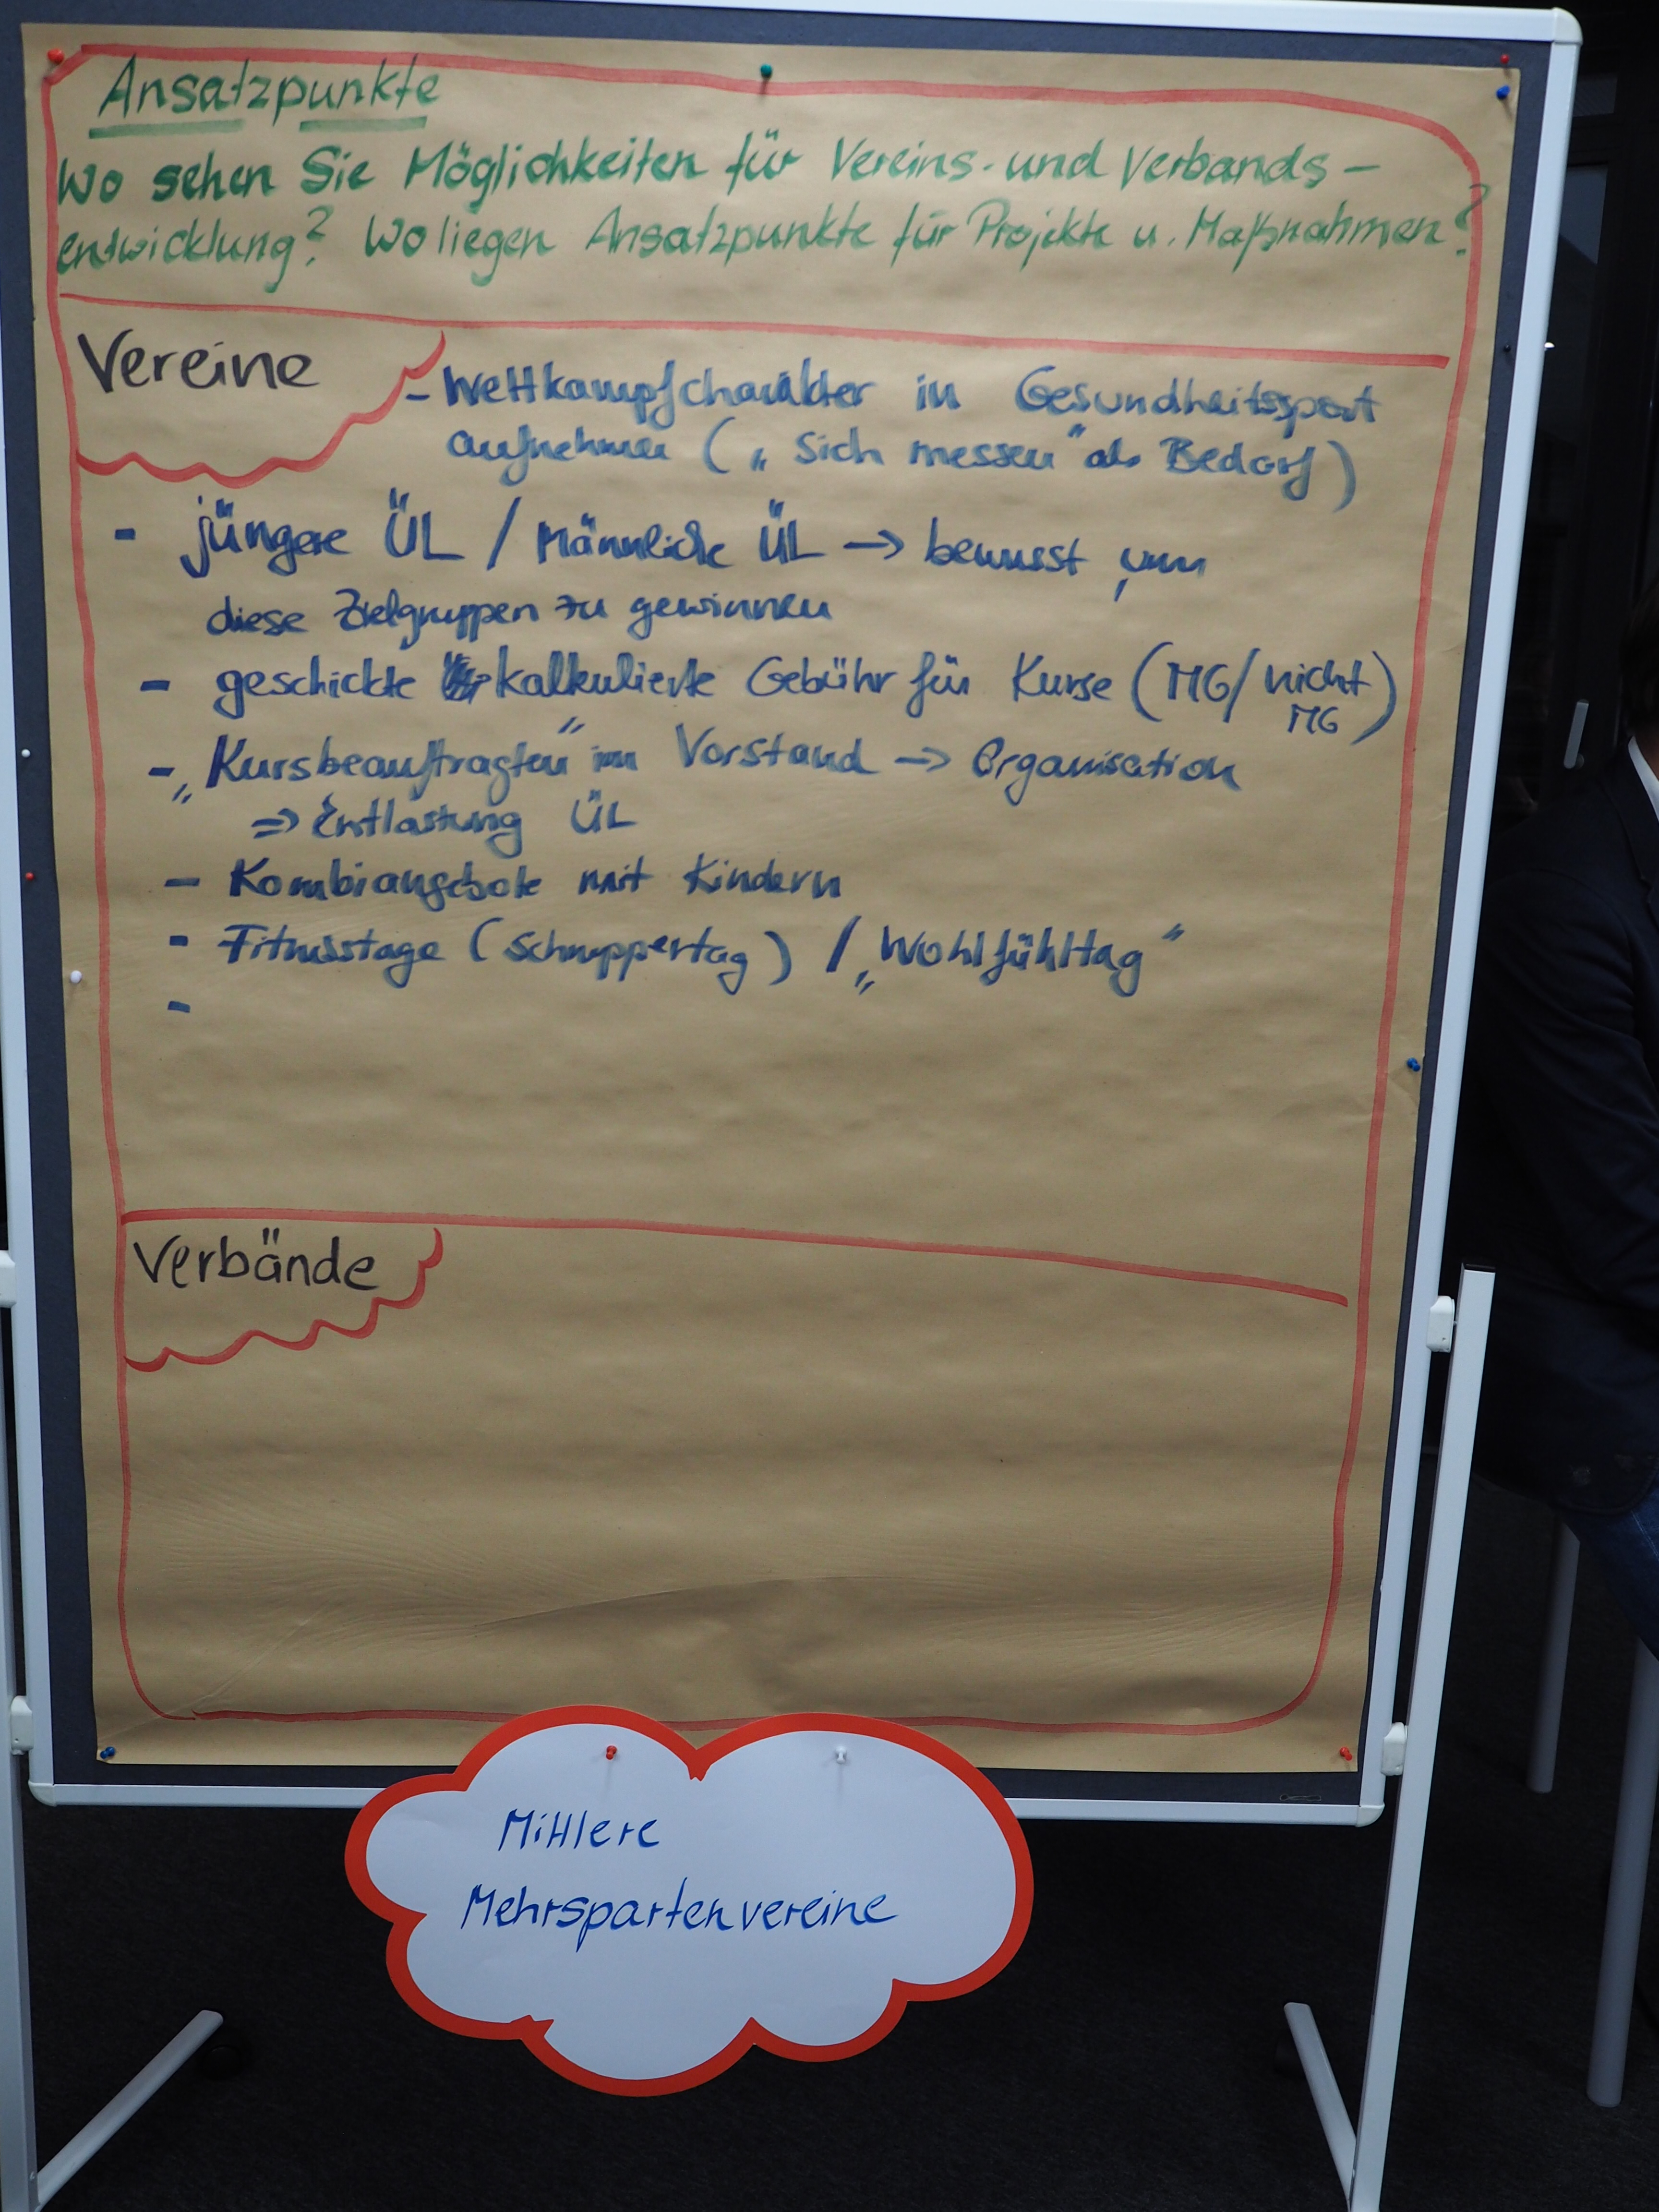 Ansatzpunkte
Wo sehen Sie Möglichkeiten für Vereins- und Verbands-
entwicklung? Wo liegen Ansatzpunkte für Projekte u. Maßnahmen?
Vereine
- Wettkampfcharakter in Gesundheitssport
aufnehmen („Sich messen" als Bedarf)
- jüngere ÜL / Männliche ÜL → bewusst, um
diese Zielgruppen zu gewinnen
- geschickte kalkulierte Gebühr für Kurse (MG/nicht
MG)
- „Kursbeauftragten" im Vorstand → Organisation
⇒ Entlastung ÜL
- Kombiangebote mit Kindern
- Fitnesstage (Schnuppertag) / „Wohlfühltag"
-
Verbände
Mittlere
Mehrspartenvereine